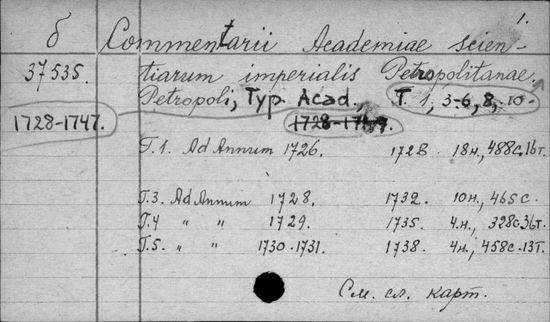 1.
б Commentarii Academiae scien-
37535. tiarum imperialis Petropolitanae.
Petropoli, Typ. Acad., T. 1, 3-6, 8, 10-
1728-1747.
T.1. Ad Annum 1726. 1728 18н., 488с. 16т.
T.3. Ad Annum 1728. 1732. 10н., 465с.
T.4 " " 1729. 1735. 4н., 328с. 36т.
T.5. " " 1730-1731. 1738. 4н., 458с. 13т.
См. сл. карт.